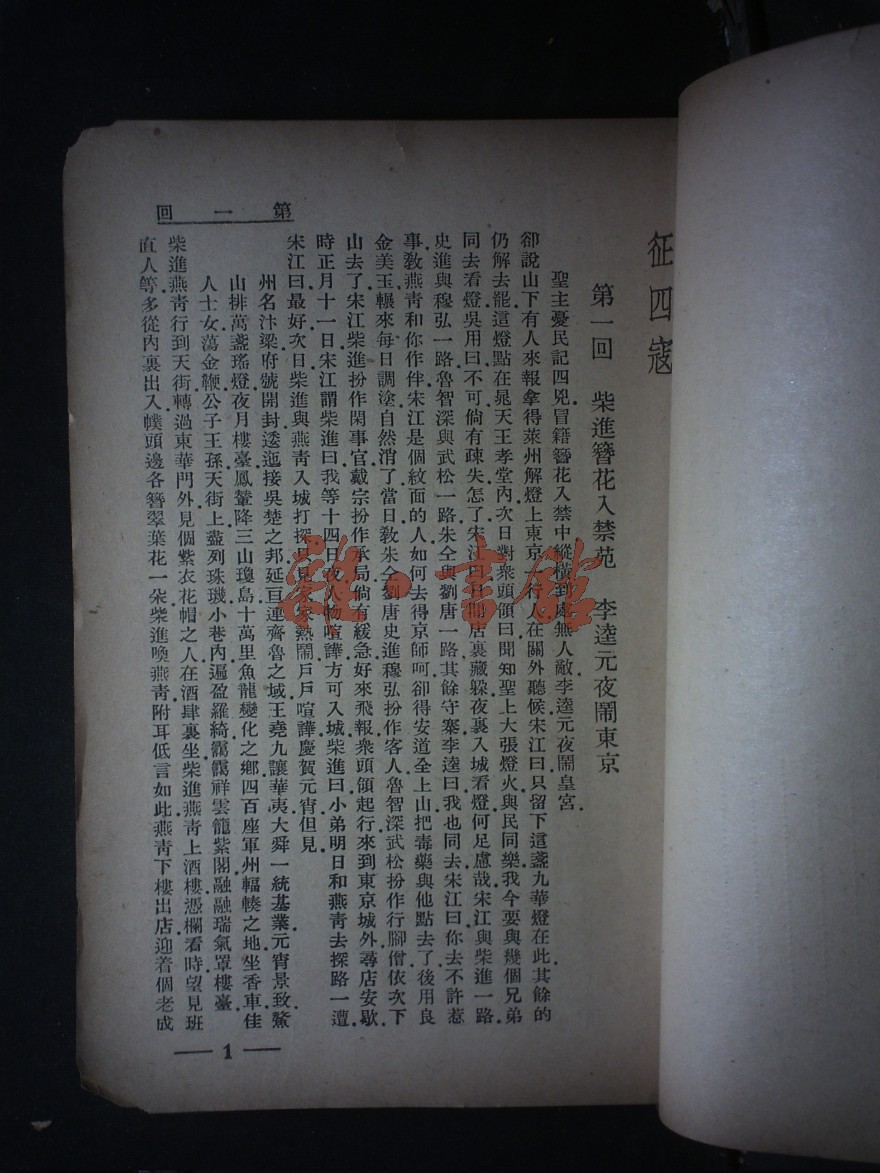 征四寇
第一回　柴進簪花入禁苑　李逵元夜鬧東京
聖主憂民記四兇．冒籍簪花入禁中．縱橫到處無人敵．李逵元夜鬧皇宮．
卻說山下有人來報．拿得萊州解燈上東京一行人在關外聽候．宋江曰．只留下這盞九華燈在此．其餘的
仍解去罷．這燈點在晁天王孝堂內．次日對衆頭領曰．聞知聖上大張燈火．與民同樂．我今要與幾個兄弟
同去看燈．吳用曰．不可．倘有疎失怎了．宋江曰．日間店裏藏躲．夜裏入城看燈．何足慮哉．宋江與柴進一路．
史進與穆弘一路．魯智深與武松一路．朱仝與劉唐一路．其餘守寨．李逵曰．我也同去．宋江曰．你去不許惹
事．敎燕青和你作伴．宋江是個紋面的人．如何去得京師呵．卻得安道全上山．把毒藥與他點去了．後用良
金美玉．輾來每日調塗．自然消了．當日敎朱仝劉唐史進穆弘扮作客人．魯智深武松扮作行腳僧．依次下
山去了．宋江柴進扮作閑事官．戴宗扮作承局．倘有緩急．好來飛報．衆頭領起行．來到東京城外．尋店安歇．
時正月十一日．宋江謂柴進曰．我等十四日夜．人物喧譁．方可入城．柴進曰．小弟明日和燕青去探路一遭．
宋江曰．最好．次日．柴進與燕青入城打探．只見家家熱鬧．戶戶喧譁．慶賀元宵．但見．
州名汴梁．府號開封．逶迤接吳楚之邦．延亘連齊魯之域．王堯九讓華夷．大舜一統基業．元宵景致．鰲
山排萬盞瑤燈．夜月樓臺．鳳輦降三山瓊島．十萬里魚龍變化之鄉．四百座軍州輻輳之地．坐香車佳
人士女．蕩金鞭公子王孫．天街上藎列珠璣．小巷內遍盈羅綺．靄靄祥雲籠紫閣．融融瑞氣罩樓臺．
柴進燕青行到天街．轉過東華門外．見個紫衣花帽之人．在酒肆裏坐．柴進燕青上酒樓．憑欄看時．望見班
直人等．多從內裏出入．幞頭邊各簪翠葉花一朵．柴進喚燕青．附耳低言如此．燕青下樓出店．迎着個老成
第一回
1
雜·書館